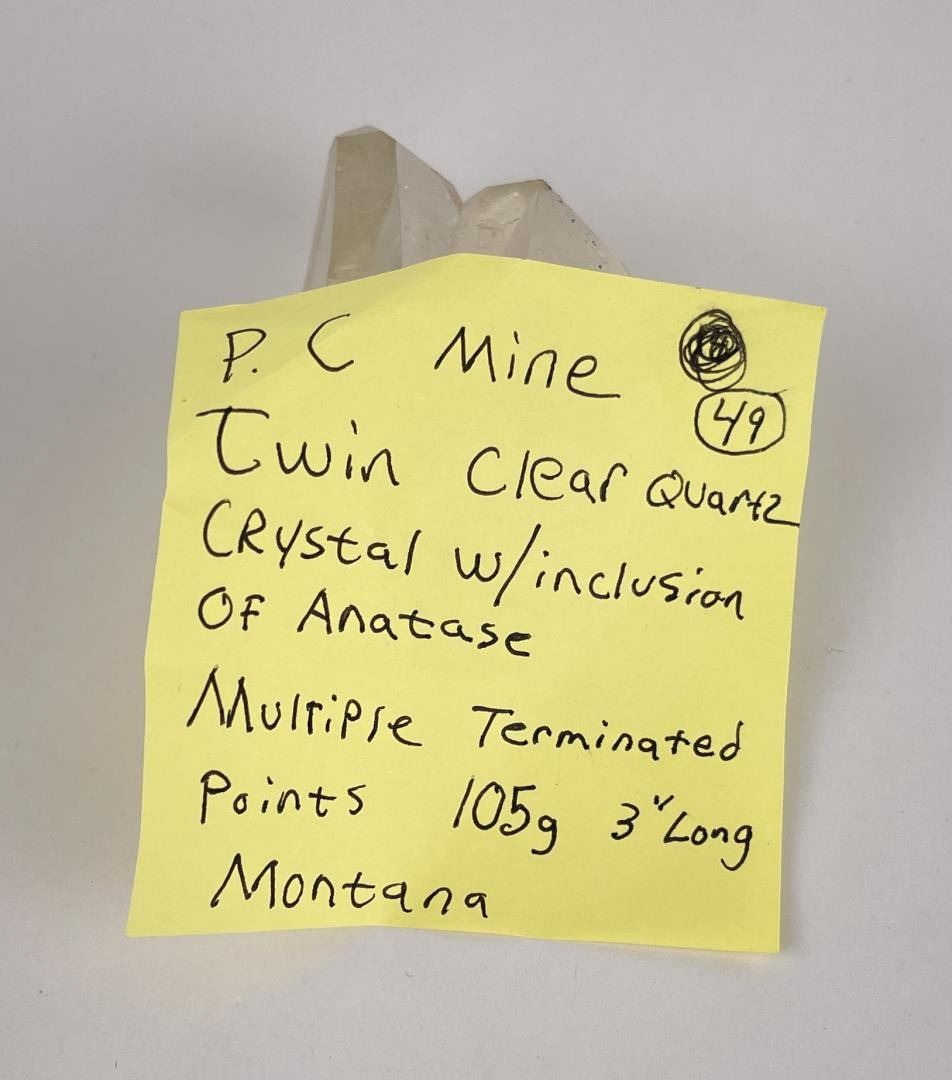 P. C Mine
49
Twin Clear Quartz
Crystal w/inclusion
Of Anatase
Multiple Terminated
Points 105g 3" Long
Montana